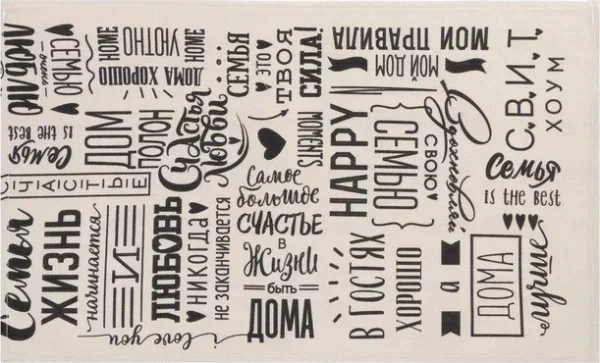 люблю
очень
СЕМЬЮ
HOME
УЮТНО
HOME
ДОМА ХОРОШО
СЕМЬЯ
♥ ЭТО
ТВОЯ
СИЛА!
МОИ ПРАВИЛА
МОЙ ДОМ
С.В.И.Т.
ХОУМ
Семья
is the best
ДОМ
ПОЛОН
Счастья
Любви
СЧАСТЬЕ
MOMENTS
HAPPY
СВОЮ
СЕМЬЮ
Вдохновляй
Семья
is the best
Семья
ЖИЗНЬ
начинается
И
ЛЮБОВЬ
НИКОГДА
не заканчивается
Самое
большое
СЧАСТЬЕ
в
Жизни
быть
ДОМА
В ГОСТЯХ
ХОРОШО
а
ДОМА
лучше
i love you